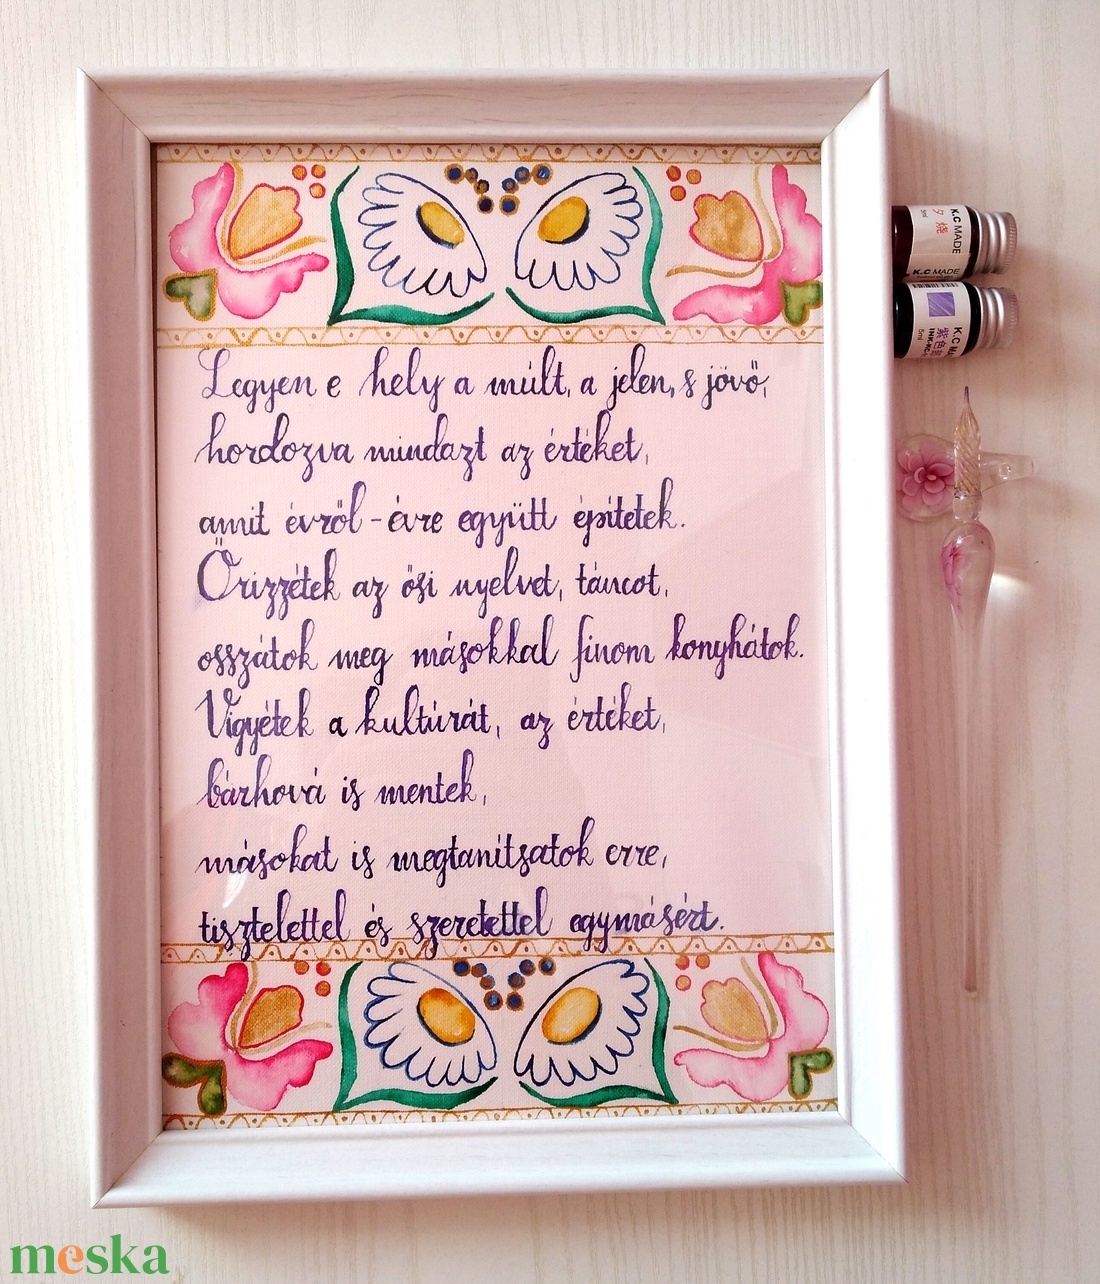 Legyen e hely a múlt, a jelen, s jövő,
hordozva mindazt az értéket,
amit évről-évre együtt építetek.
Őrizzétek az ősi nyelvet, táncot,
osszátok meg másokkal finom konyhátok.
Vigyétek a kultúrát, az értéket,
bárhová is mentek,
másokat is megtanítsatok erre,
tisztelettel és szeretettel egymásért.
K.C MADE
夕烧
5ml
K.C MADE
K.C MA
紫色
5ml
meska